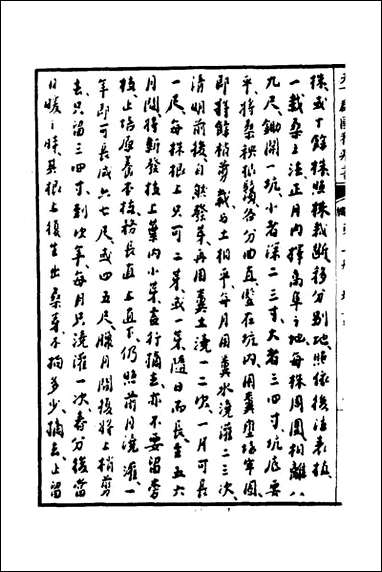 株或十餘株照株栽斷移分别地照依後法表植
一栽桑上法正月內擇高阜之地每株周圍相離八
九尺鋤開一坑小者深二三寸大者三四寸坑底要
平將桑秧根鬚各分曲直鋪在坑內用糞壅培牢固
即將餘梢剪栽与土相平每月用糞水澆灌二三次
清明前後自然發芽再用糞土澆一二次一月可長
一尺每株根上只可二芽或一芽隨日而長至五六
月間將新發枝上葉內小芽盡行摘去亦不要留旁
枝上培原養本枝格長直上直下仍照前月澆灌一
年即可長成六七尺或四五尺臘月間復將上梢剪
去只留三四寸到次年每月只澆灌一次春分後當
日暖之時其根上復生出桑芽不拘多少摘去上留